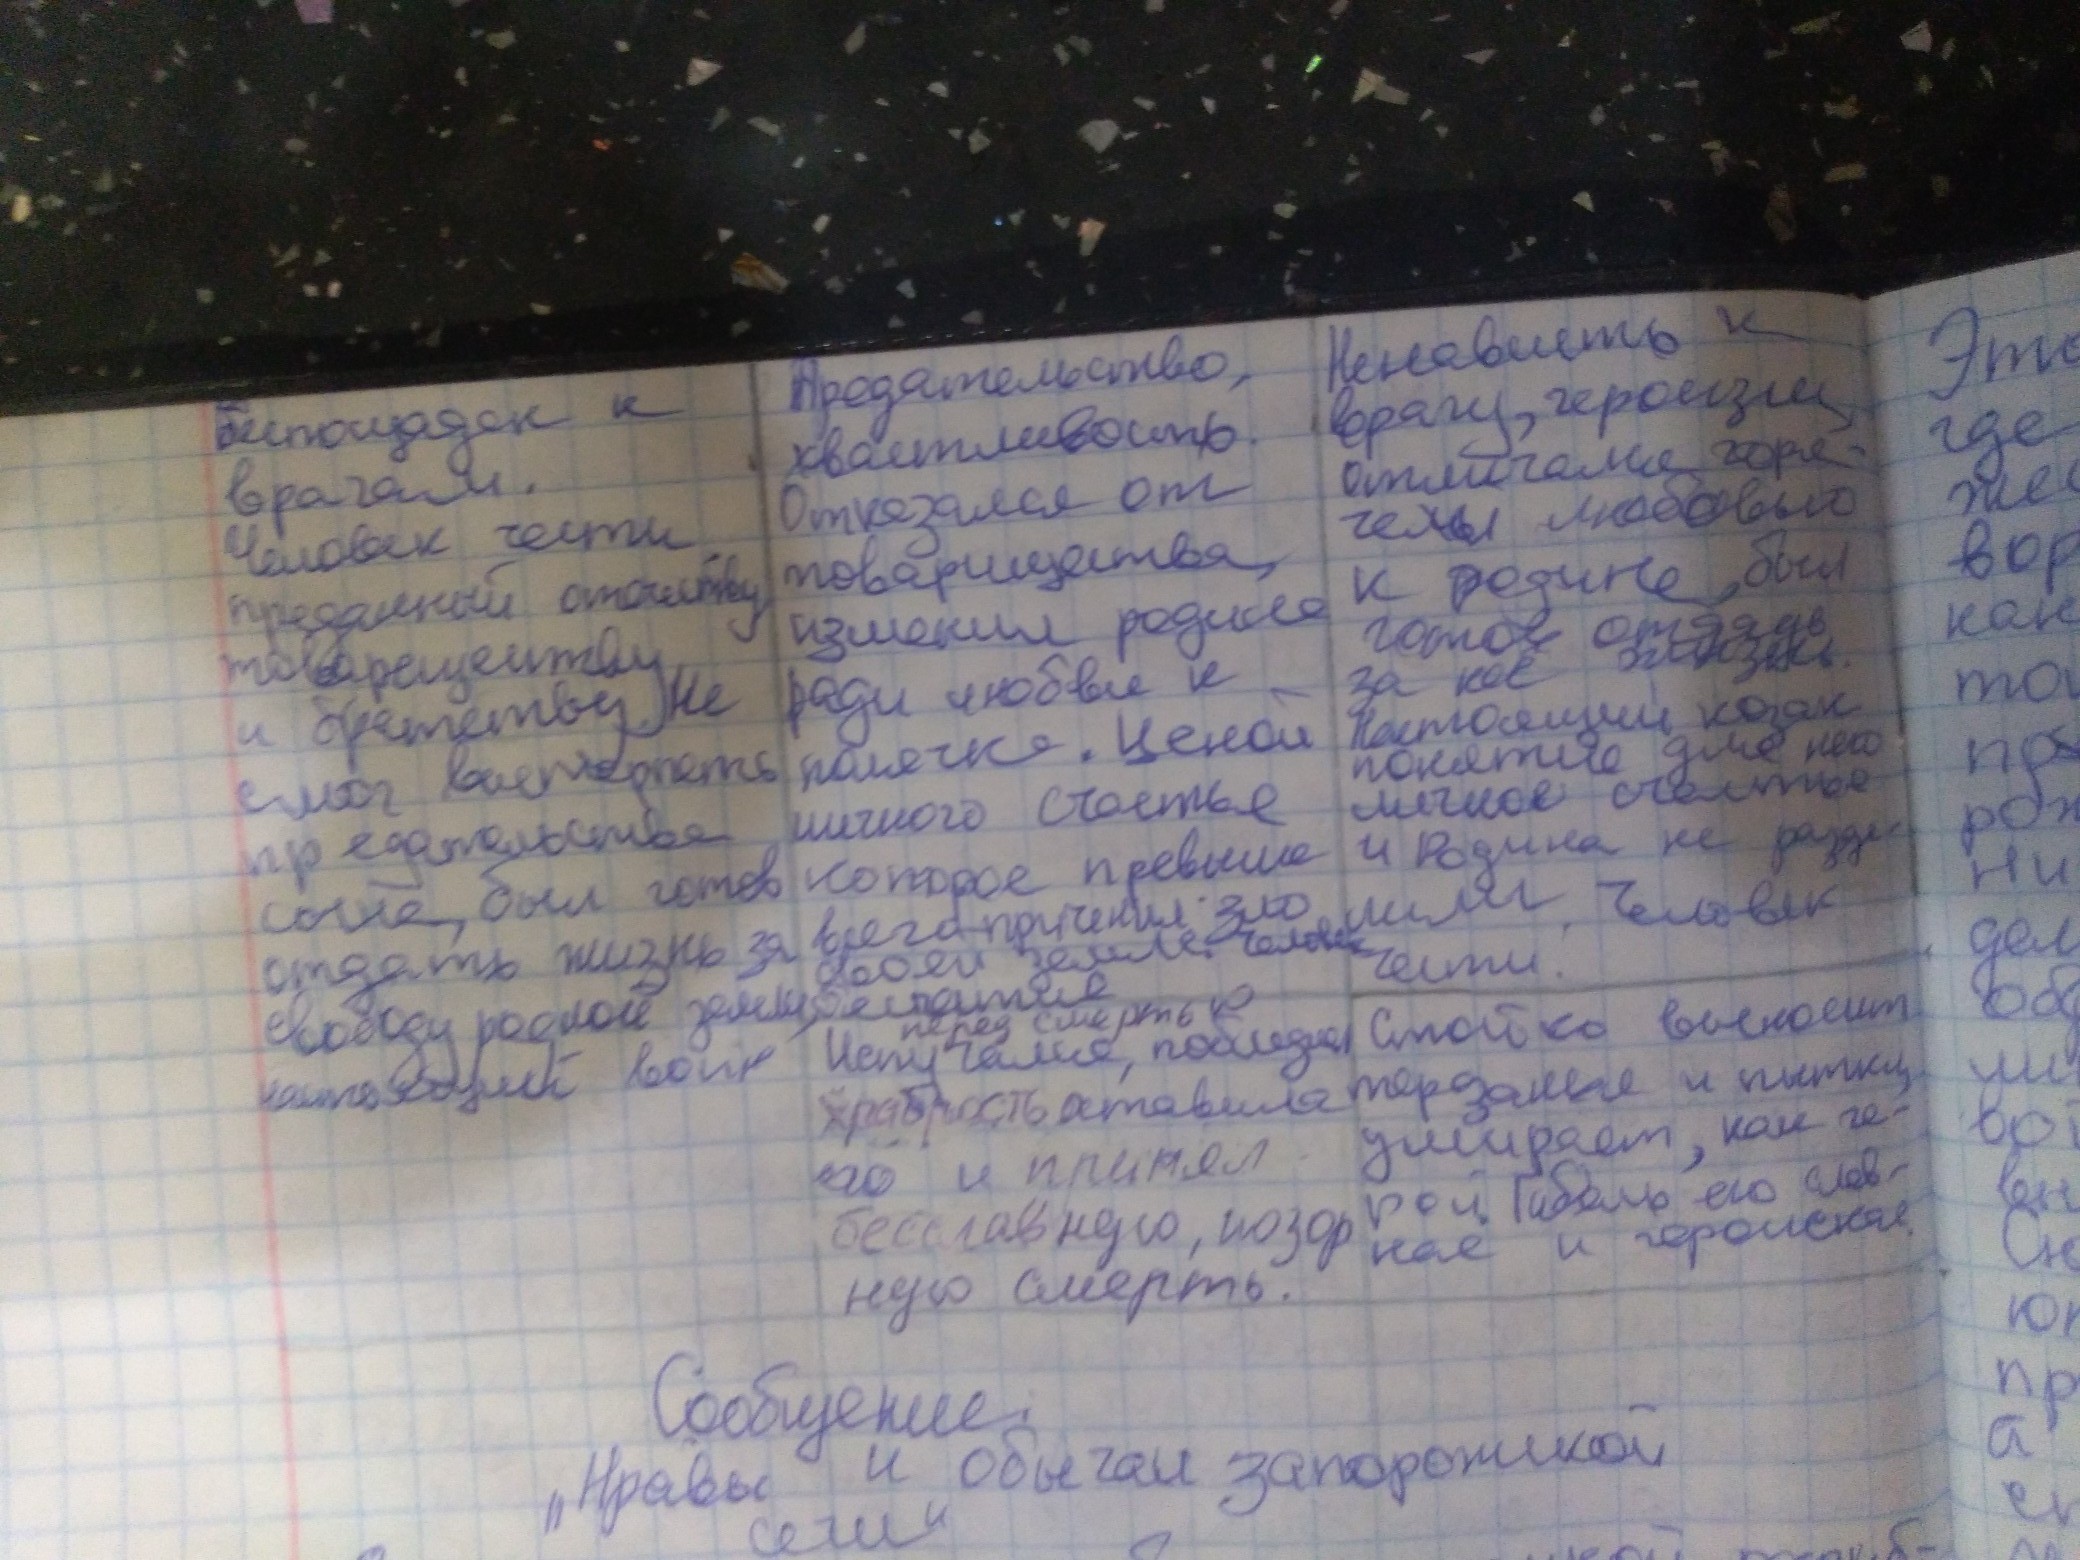 беспощаден к
врагам.
Человек чести
преданный отечеству
товариществу
и братству. Не
смог вытерпеть
предательства
сына, был готов
отдать жизнь за
свободу родной земли,
настоящий воин
Предательство,
хвастливость.
Отказался от
товарищества,
изменил родине
ради любви к
полячке. Ценой
личного счастья
которое превыше
всего причинил зло
своей земле. Человек
бесчестия
перед смертью
Испугался, побледнел
храбрость оставила
его и принял
бесславную, позор
ную смерть.
Ненависть к
врагу, героизм,
отличался горя-
чей любовью
к родине, был
готов отдать
за неё жизнь.
Настоящий козак
понятие для него
личное счастье
и Родина не разде-
лимы. Человек
чести.
Стойко выносит
терзанья и пытки,
умирает, как ге-
рой. Гибель его слав-
ная и геройская.
Сообщение.
„Нравы и обычаи запорожской
сечи“
Это
где
вор
как